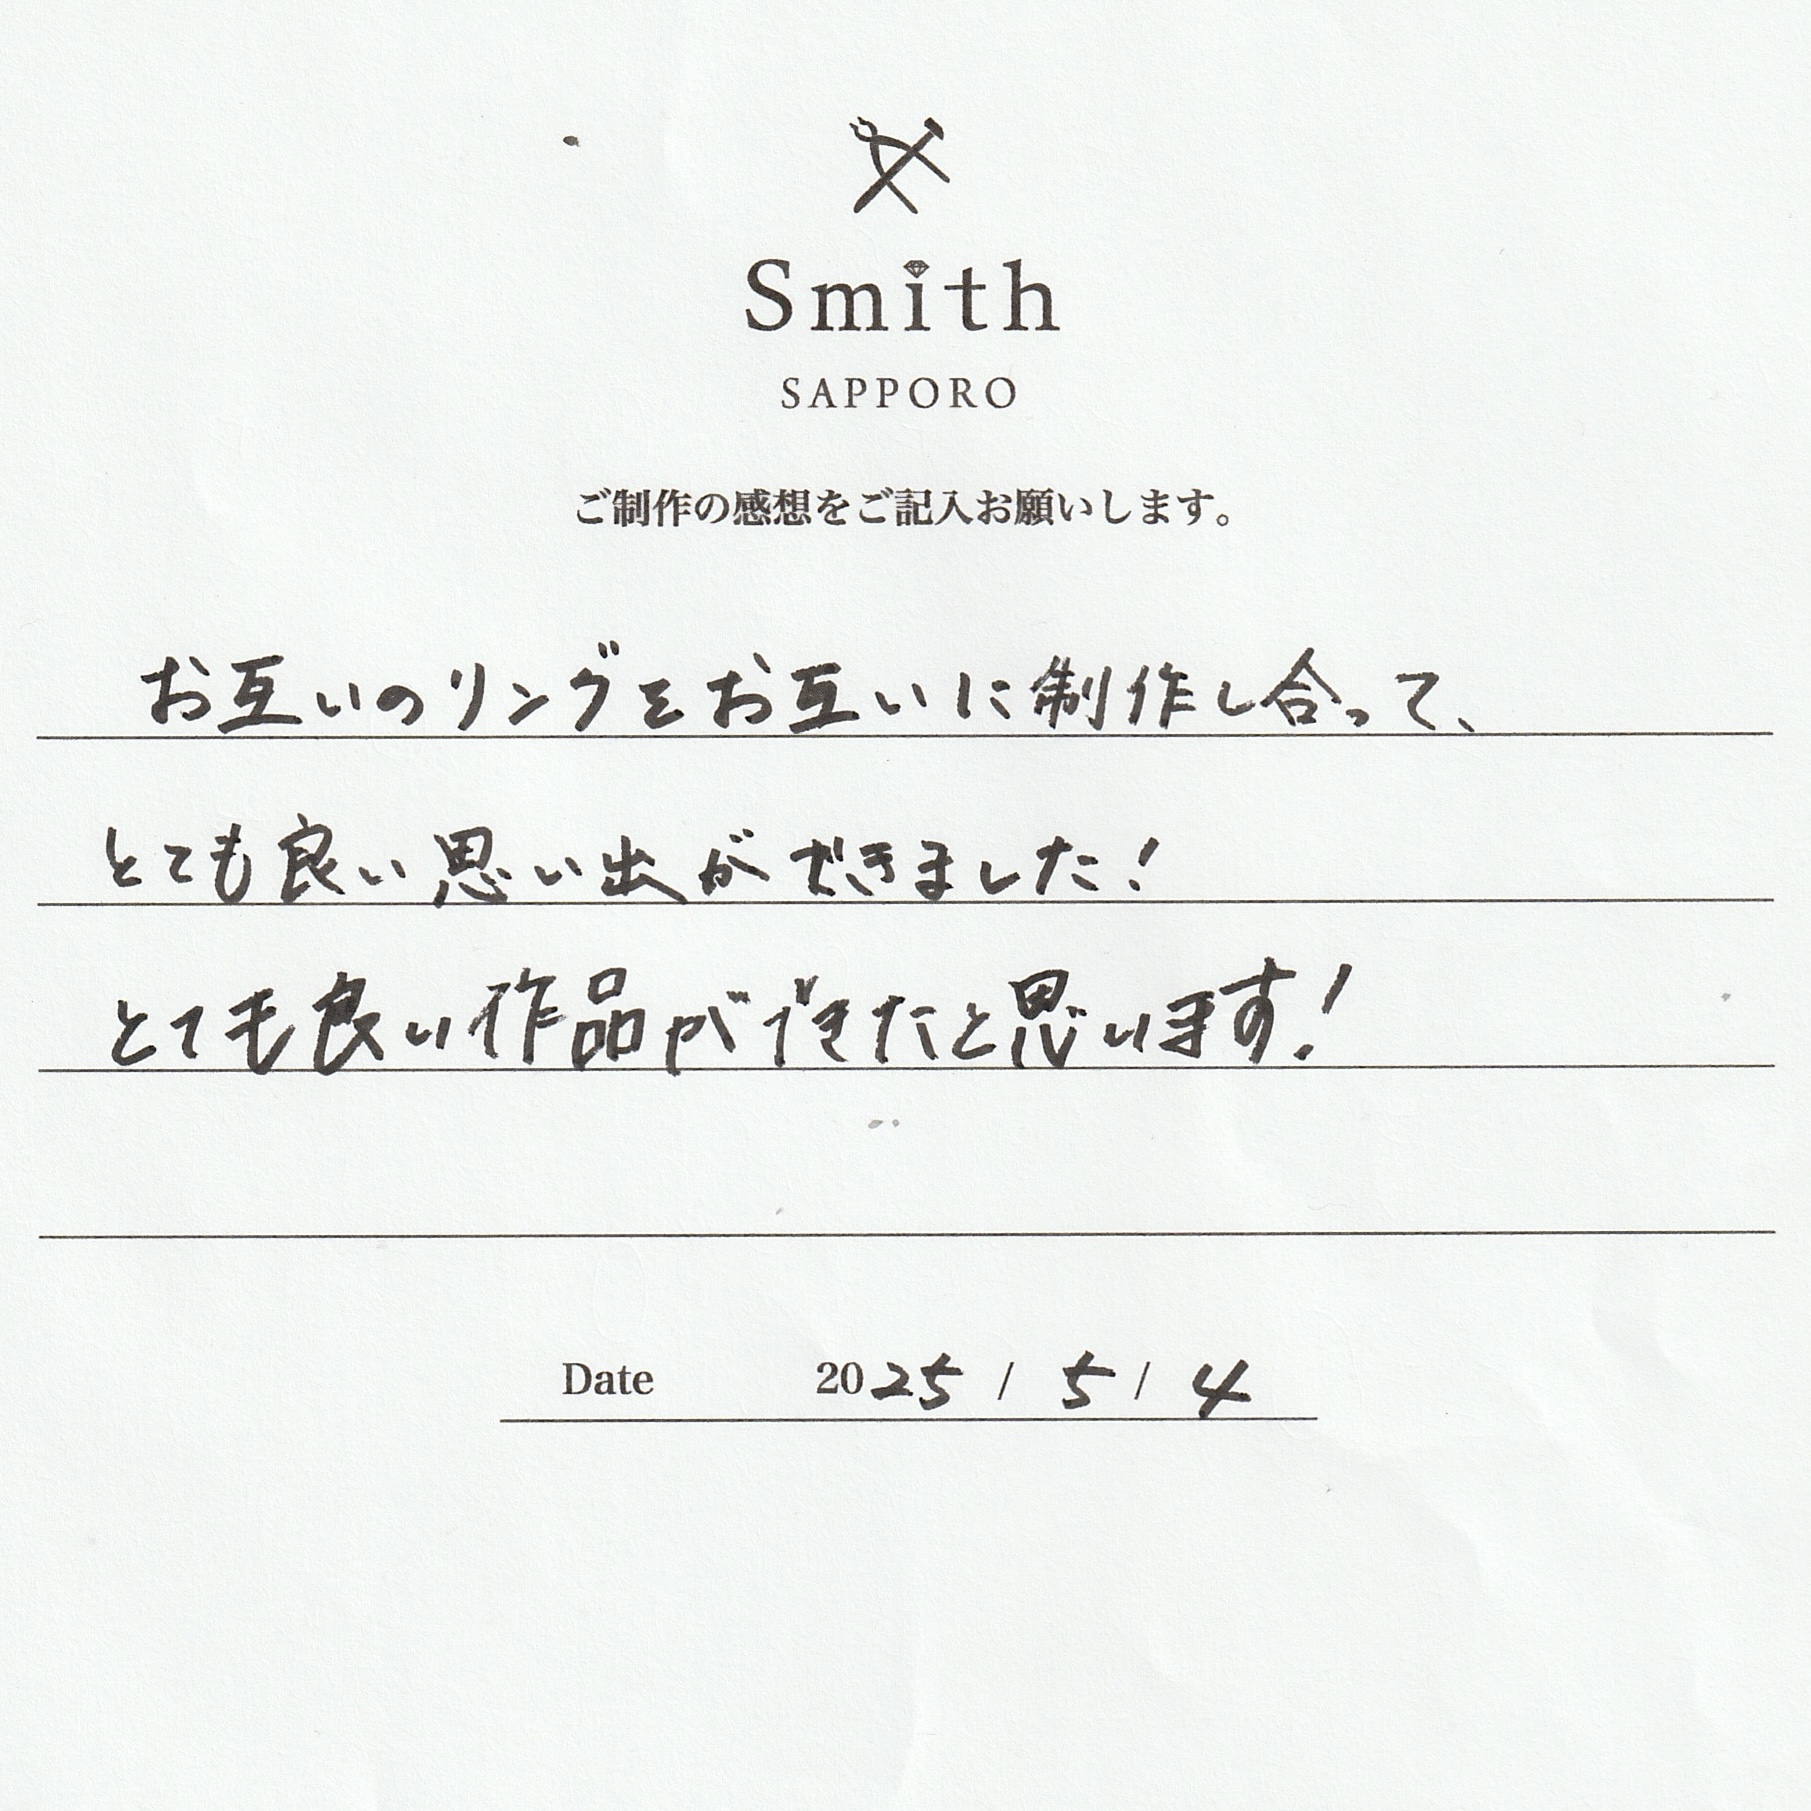 Smith
SAPPORO
ご制作の感想をご記入お願いします。
お互いのリングをお互いに制作し合って、
とても良い思い出ができました！
とても良い作品ができたと思います！
Date 2025 / 5 / 4